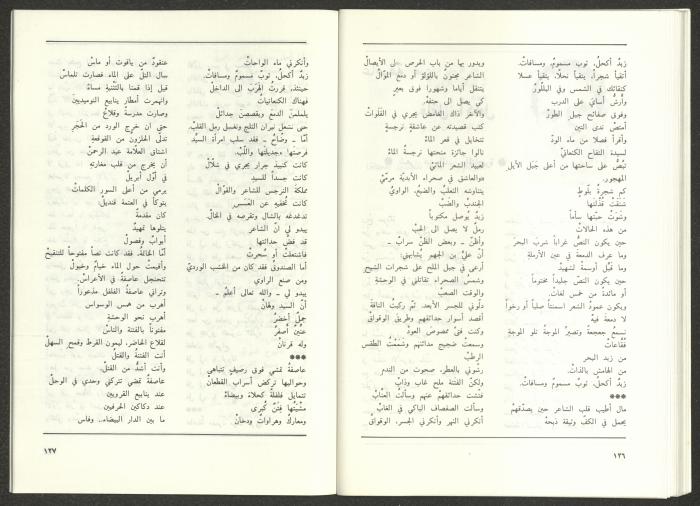 زبدٌ أكحلُ، ثوبٌ مسمومٌ، ومسافاتْ.
أتقيأ شجراً، يتقيأ نحلًا، يتقيأ عسلا
كنفاثتك في الشمس وفي البللورْ
وأرشُّ أساي على الدرب
وفوق صفائح جبل الطورْ
أمتصّ ندى التين
وأقرأ فصلًا من ماء الوردْ
لسيدة التفاح الكنعانيّْ
تبُضُّ على ساحتها من أعلى جبل الأيل
المهجور.
كم شجرةُ بلّوطٍ
شنقتْ قُتْلتها
وشوتْ حبّتها سأماً
من هذه الحالاتْ
حين يكون النصُّ غراباً شرب البحرَ
وما عرف الدمعة في عين الأرملةِ
وما قبّل أوسمةً لشهيدْ
حين يكون النصّ جليداً مختوماً
أو مائدةً من خمس لغاتْ.
ويكون عمودُ الشعر اسمنتاً صلباً أو رخواً
لا دمعة فيهْ
نسمعُ جعجعةً وتصيرُ الموجةُ تلو الموجةِ
فُقّاعاتْ
من زبد البحر
من الهامش بالذاتْ.
زبدٌ أكحلُ، ثوبٌ مسمومٌ ومسافاتْ.
***
مال أطيب قلب الشاعر حين يصدّقهمْ
يحمل في الكفّ وثيقة ذبحهْ
ويدور بها من باب الحرص على الأيصالْ
الشاعر مجنونٌ باللؤلؤ أو دمع الموّالْ
يتنقل أياماً وشهوراً فوق بعيرٍ
كي يصل الى حتفهْ.
والآخر ذاك الغامض يجري في الفلواتْ
كتب قصيدته عن عاشقةٍ نرجسةٍ
تتخايل في قعر الماءْ
نالوا جائزة منحتها نرجسةُ الماءْ
لعبيد الشعر المائيّْ
والعاشق في صحراء الأبدية مرميّْ
يتناوشه الثعلبُ والضبعُ، الراويْ
الجندبُ والضبّْ
زبدٌ يُوصل مكتوباً
رملٌ لا يصل الى الجبّْ
وأظنّ - وبعض الظنّ سرابٌ -
أن عليّ بن الجهم يشابهني:
أرعى في جبل الملح على شجرات الشيحِ
وشمسُ الصحراء تقاتلني في الوحشةِ
والوقت الصعبْ
دلّوني للجسر الأبعد. ثم ركبتُ الناقةَ
أقصد أسوار حدائقهم وطريق الوقواقْ
وكنت فتىً ممصوص العودْ
وسمعتُ ضجيج مدائنهم وشممتُ الطقس
الرطبْ
رشوني بالعطر. صحوت من النذر
ولكنّ الفتنة ملح غاب وذابْ
فتشت حدائقهمْ عنهم وسألتُ العنّابْ
وسألت الصفصاف الباكي في الغابْ
أنكرني النهر وأنكرني الجسر، الوقواقُ
١٢٦
وأنكرني ماء الواحاتْ
زبدٌ أكحلُ، ثوبٌ مسمومٌ ومسافاتْ.
حينئذ، قررتُ الهَرَبَ الى الداخلْ
فهناك الكنعانياتْ
يلملمن الدمع ويقصصن جدائلْ
حتى تشتعل نيران الثلج وتغسل رمل القلبْ.
أمّا - وضّاح - فقد سلب امرأة السيدْ
فرستها، وجديلتها واللّبْ.
كانت كنبيذ جرار يجري في شلّالْ
كانت جسداً للسيد
مملكة النرجس للشاعر والقوّالْ
كانت تُخفيه عن العَسس
تدغدغه بالشال وتقرصه في الخالْ.
يبدو لي أنّ الشاعر
قد فضّ حدائتها
فاشتعلتْ أو سُحرتْ
أما الصندوقُ فقد كان من الخشب الورديّْ
ومن صنع الراوي
يبدو لي - والله تعالى أعلمُ -
أنّ السيد وهّانْ
جملٌ أخضرُ
عنّينٌ أصفرُ
وله قرنانْ
***
عاصفةٌ تمشي فوق رصيفٍ تتباهى
وحواليها تركض أسراب القطعانْ
تتمايل فلفلةً كحلاءَ وبيضاءْ
مشيتُها فِتَنٌ كبرى
ومعارك وهراواتٌ ودخانْ
عنقودٌ من ياقوت أو ماسْ
سال التلّ على الماء فصارت تلماسْ
قيل إذا قمنا بالتثنيةِ مساءً
وانهمرت أمطار ينابيع النوميديين
وصارت مدرسةً وقلاعْ
حتى ان خرج الورد من الحَجَر
تدلّى الحلزون من القوقعةِ
اشتاق العلامة عبد الرحمنْ
أن يخرج من قلب مغارته
في أول أبريلْ
يرمي من أعلى السور الكلماتْ
يتوكأ في العتمة قنديلْ:
كان مقدمةً
يتلوها تمهيدْ
أبوابٌ وفصولٌ
أمّا الخاتمةُ، فقد كانت نصاً مفتوحاً للتنقيحْ
وأقيمتْ حول الماء خيامٌ وخيولْ
تتجلجل عاصفةٌ في الأعراسْ.
وتراني عاصفةُ الفلفل مذعوراً
أهرب من همس الوسواس
أهرب نحو الوحشةِ
مفتوناً بالفتنة والناسْ
لقلاع الحاضر، ليمون القرط وقمح السهلْ
أنت الفتنةُ والقتلْ
وأنت أشدُّ من القتلْ.
عاصفةٌ تمضي تتركني وحدي في الوحلْ
عند ينابيع القرويين
عند دكاكين الحرفيين
ما بين الدار البيضاء.. وفاس
١٢٧